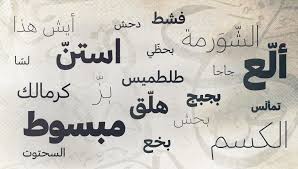 أيش هذا
دحش
فشط
الشّورمة
ألّع
استنّ
بحطّي
جاحا
لشا
طلطميس
كرمالك
بزّ
بجبج
تمالس
هلّق
مبسوط
بحش
الكسم
بخع
السحتوت